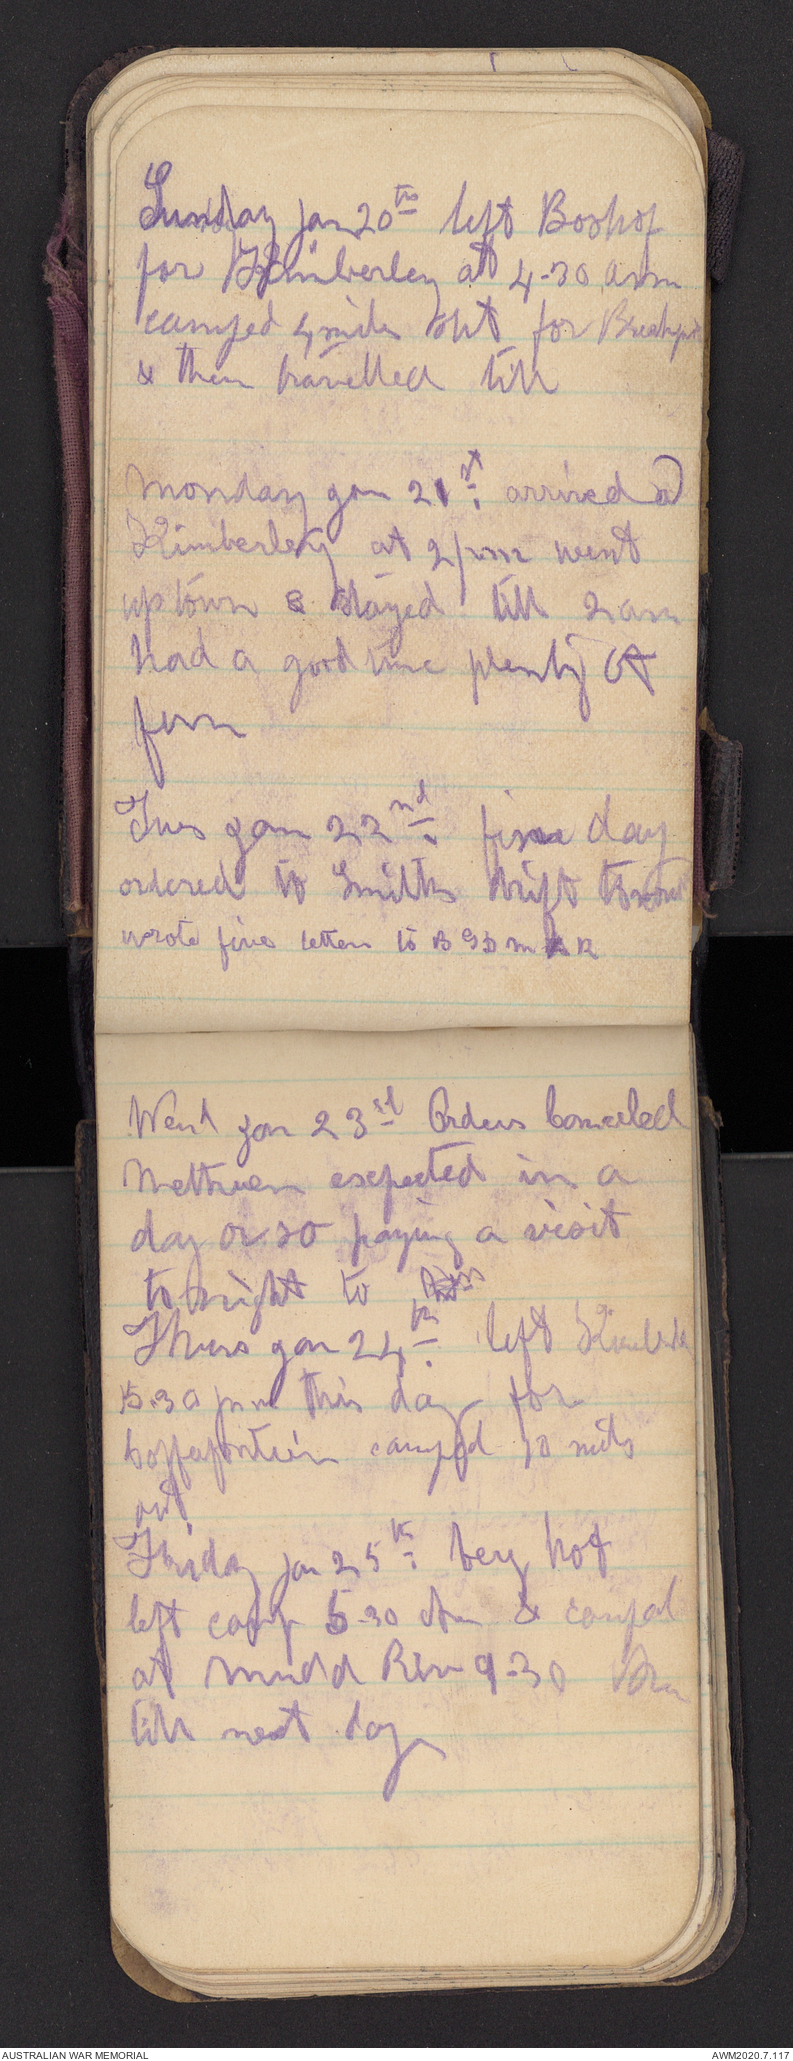 Sunday jan 20th left Boshof
for Kimberley at 4-30 am
camped 4 miles out for
& then travelled till
Monday jan 21st arrived at
Kimberley at 2 pm went
up town & stayed till 2 am
had a good time plenty of
funn
Tues jan 22nd fine day
ordered to Smiths drift
wrote five letters to B
Wend jan 23rd Orders canceled
Methuen expected in a
day or so paying a visit
to night to
Thurs jan 24th left
5.30 pm this day for
camped 10 miles
out
Friday jan 25th very hot
left camp 5-30 Am & camped
at Mudd River 9-30
till next day
AUSTRALIAN WAR MEMORIAL
AWM2020.7.117